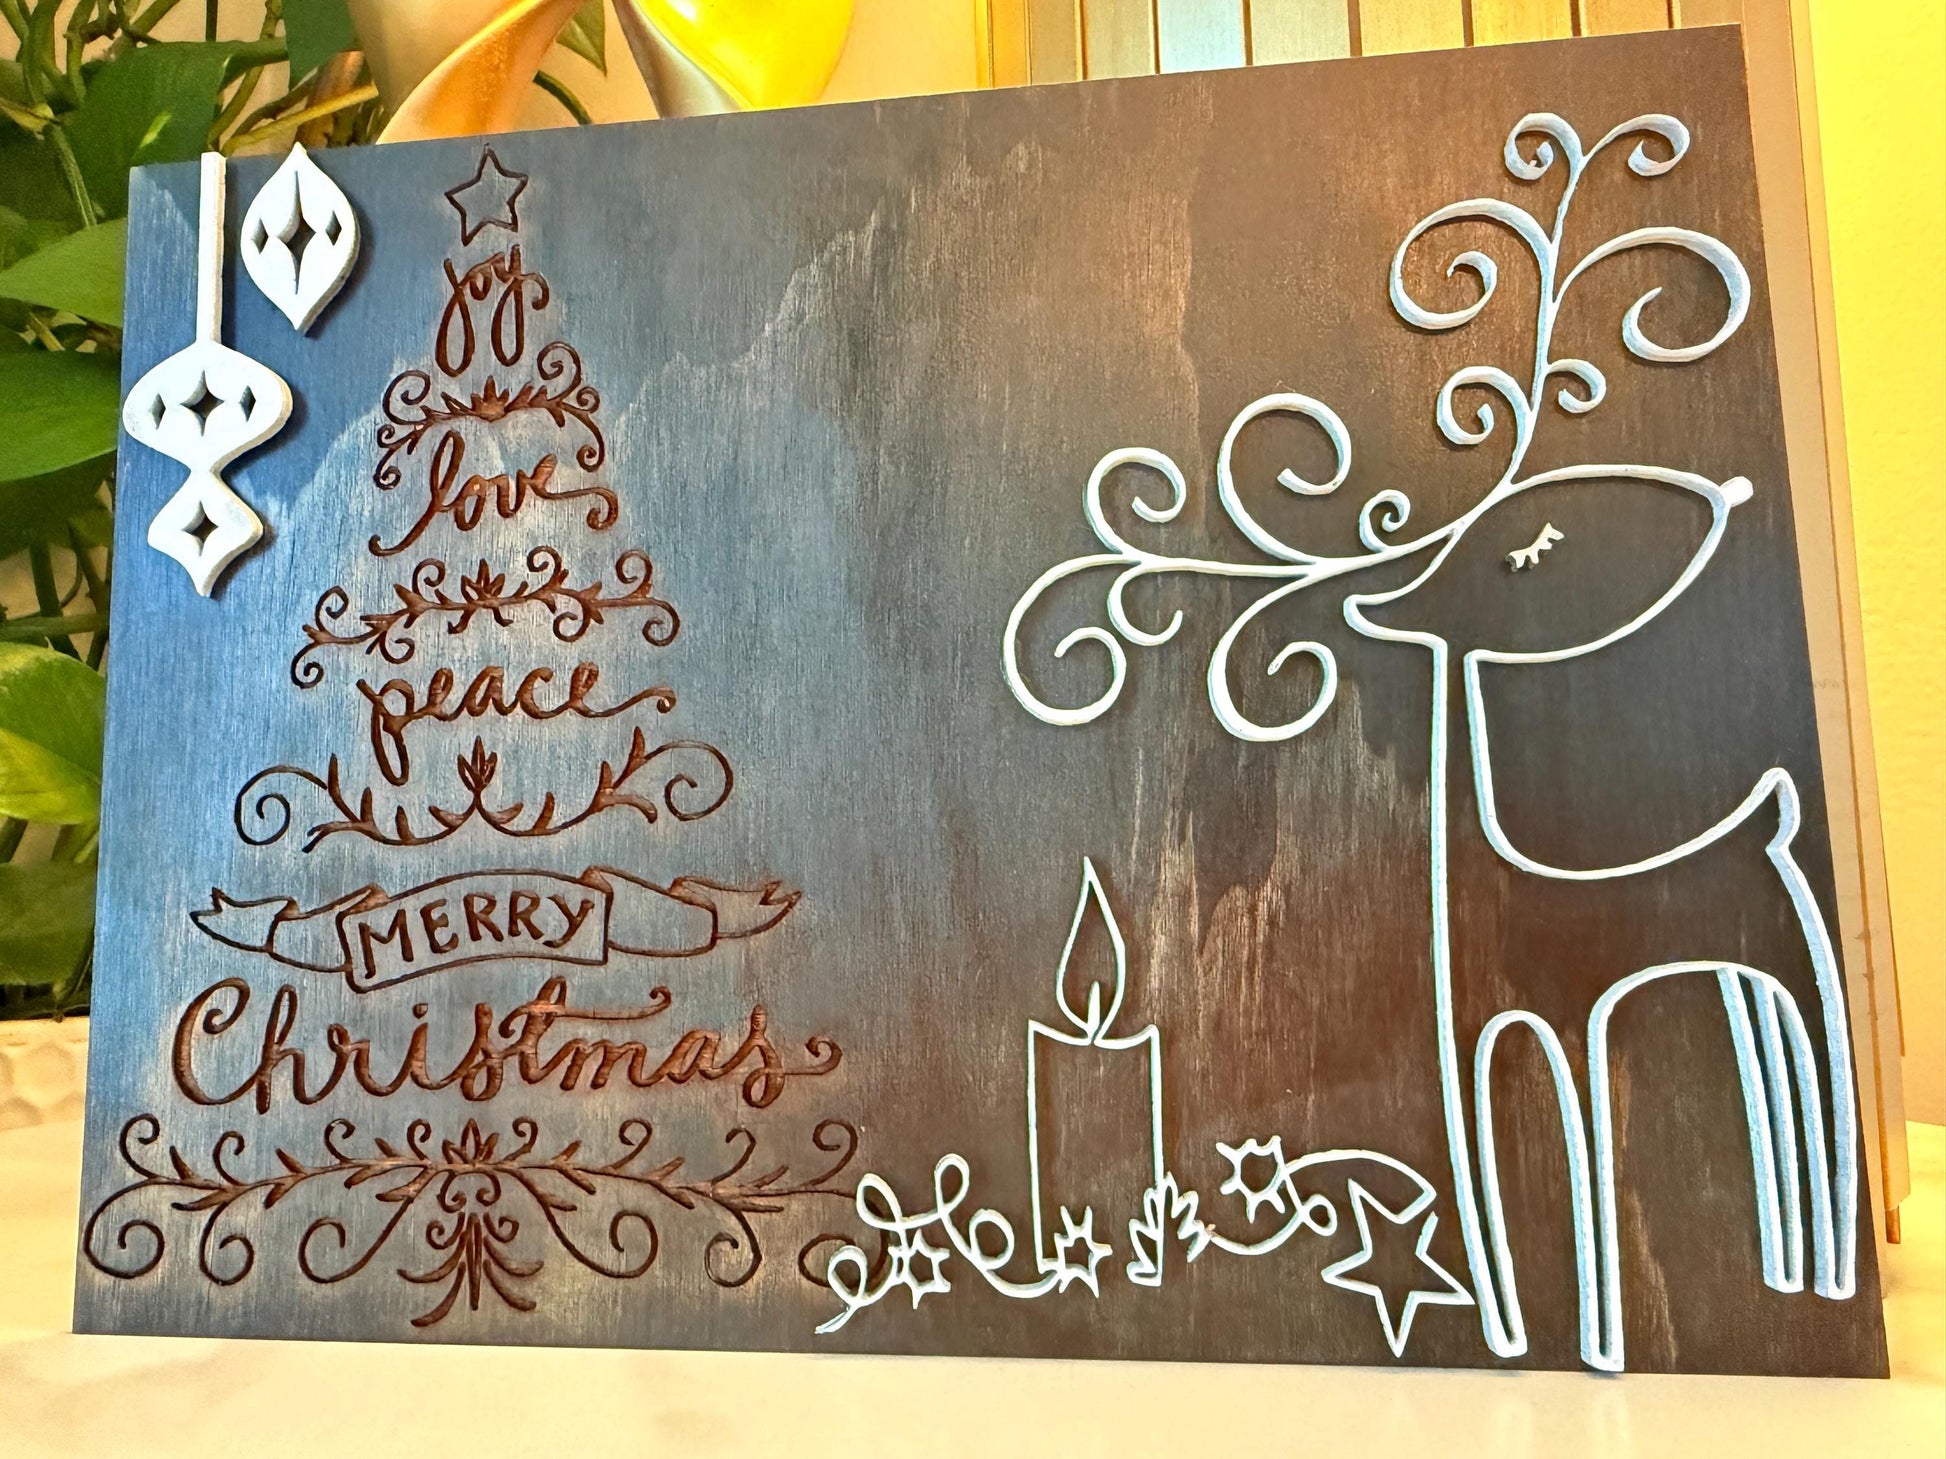 joy
love
peace
MERRY
Christmas